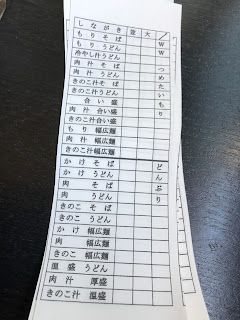 しながき 並 大
もりそば
もりうどん
冷やし汁うどん
肉汁 そば
肉汁うどん
きのこ汁 そば
きのこ汁うどん
合い盛
肉汁 合い盛
きのこ汁合い盛
もり 幅広麺
肉汁 幅広麺
きのこ汁 幅広麺
かけそば
かけうどん
肉 そば
肉 うどん
きのこ そば
きのこ うどん
かけ 幅広麺
肉 幅広麺
きのこ 幅広麺
温盛 うどん
肉汁 厚盛
きのこ汁 温盛
つめたいもり
どんぶり